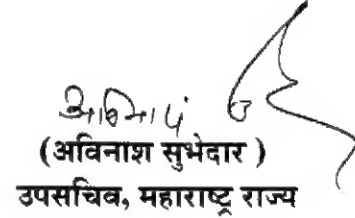 (अविनाश सुभेदार )
उपसचिव, महाराष्ट्र राज्य